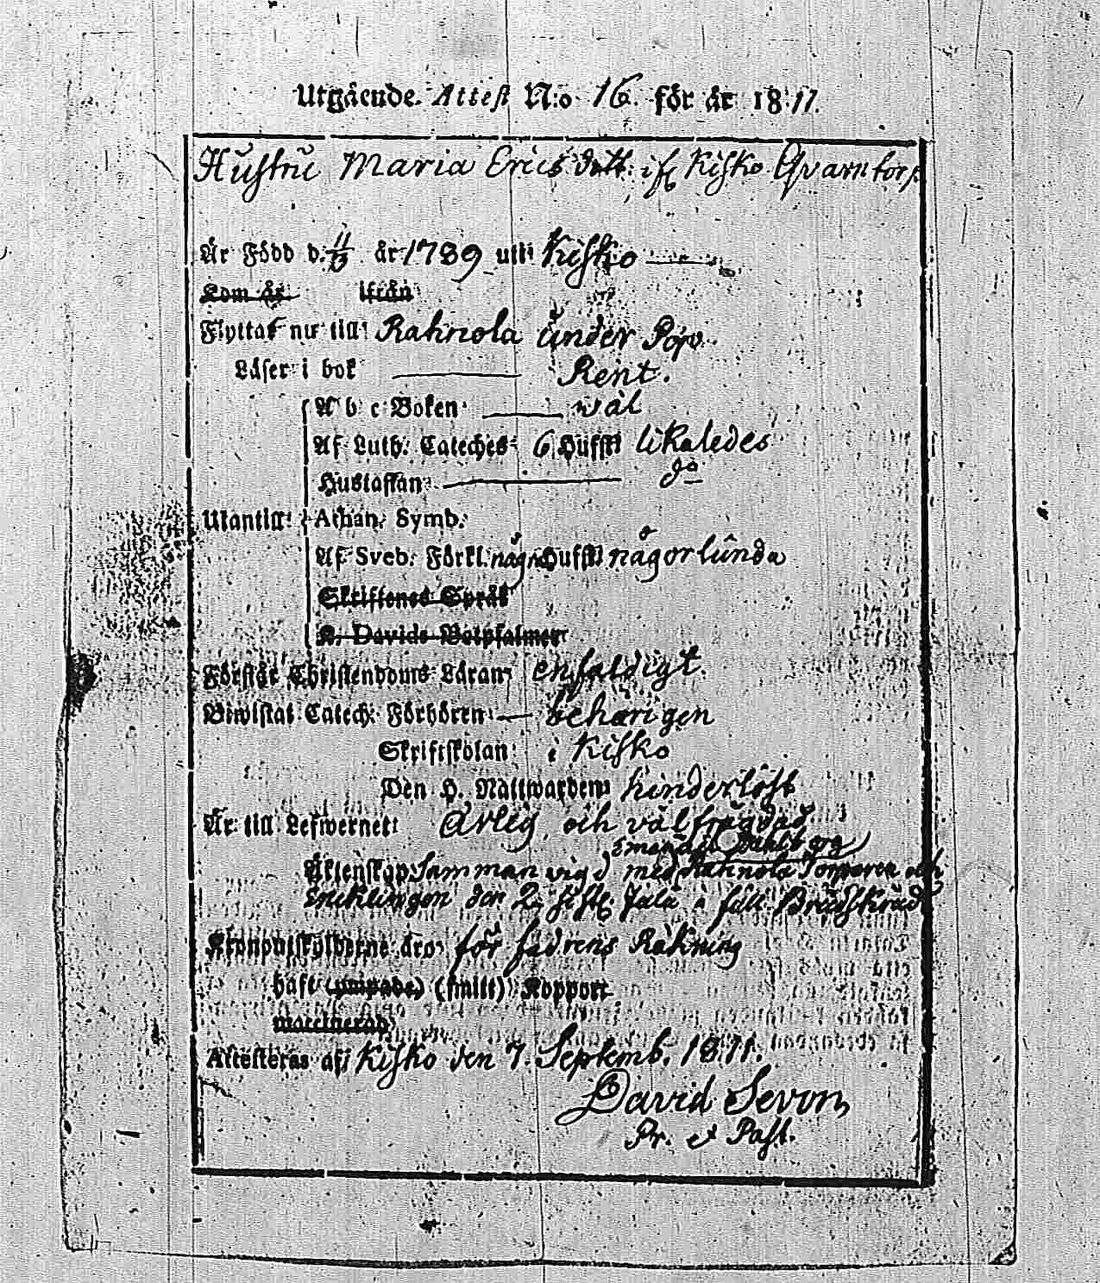 Utgående Attest N:o 16. för år 1811.
Hustru Maria Ericsdott: if: Kisko Qvarntorp
Är Född d. 11/6 år 1789 uti Kisko
Kom år ifrån
Flyttat nu till Rahnola under Pojo
Läser i bok Rent.
A b c Boken wäl
Af Luth. Cateches 6 Hufst likaledes
Hustaflan do
Utantill: Athan. Symb.
Af Sveb. Förkl. någr Hufst någorlunda
Skriftenes Språk
K. Davids Botpsalmer
Förstår Christendoms Läran enfaldigt.
Biwistat Catech. Förhören behörigen
Skriftskolan i Kisko
Den H. Nattwarden hinderlöst
Är till Lefwernet ärlig och välfrägdad
Emanuel Dahlberg
Äktenskap Sammanvigd med Rahnola Torparen och
Enklingen den 2
Kronoutskylderne äro för fadrens Räkning
haft (ympade) (smitt) Koppor
waccinerad
Attesteras af Kisko den 7. Septemb. 1811.
David Sevon
Pr. et Past.